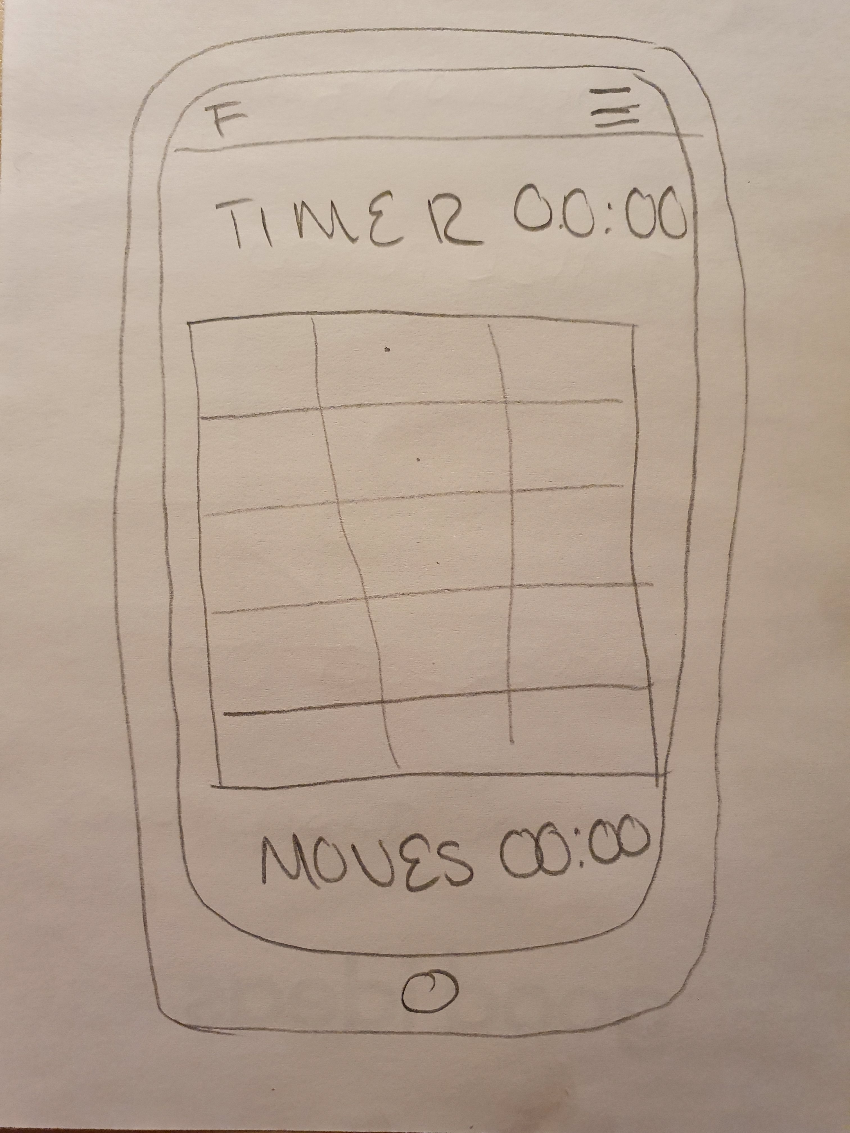 F
TIMER 00:00
MOVES 00:00